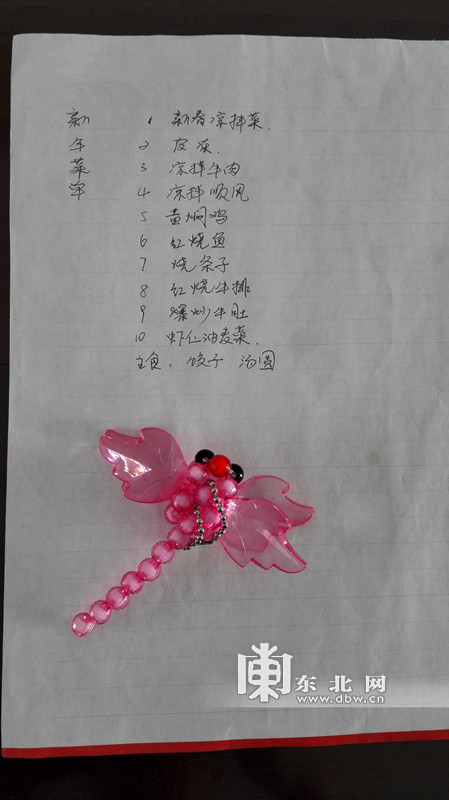 新年菜单
1 新春凉拌菜.
2 皮冻
3 凉拌牛肉
4 凉拌顺风
5 黄焖鸡
6 红烧鱼
7 烧条子
8 红烧牛排
9 爆炒牛肚
10 虾仁油麦菜.
主食: 饺子 汤圆
东北网
www.dbw.cn